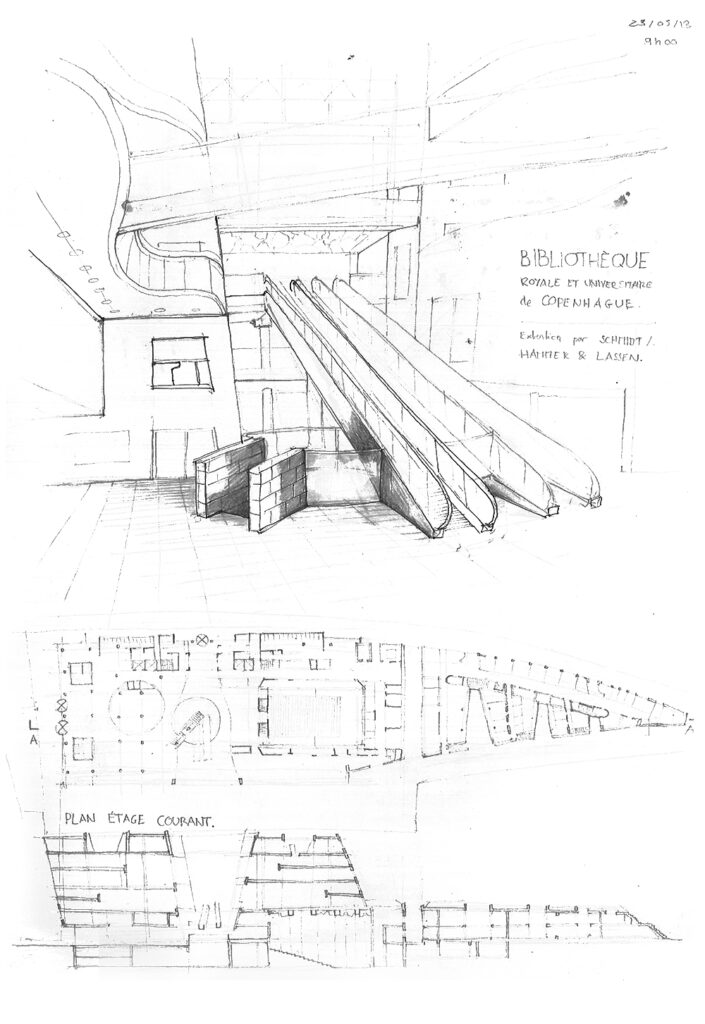 23/05/13
9h00
BIBLIOTHÈQUE
ROYALE ET UNIVERSITAIRE
de COPENHAGUE.
Extention par SCHMIDT /.
HAMMER & LASSEN.
A
PLAN ÉTAGE COURANT.